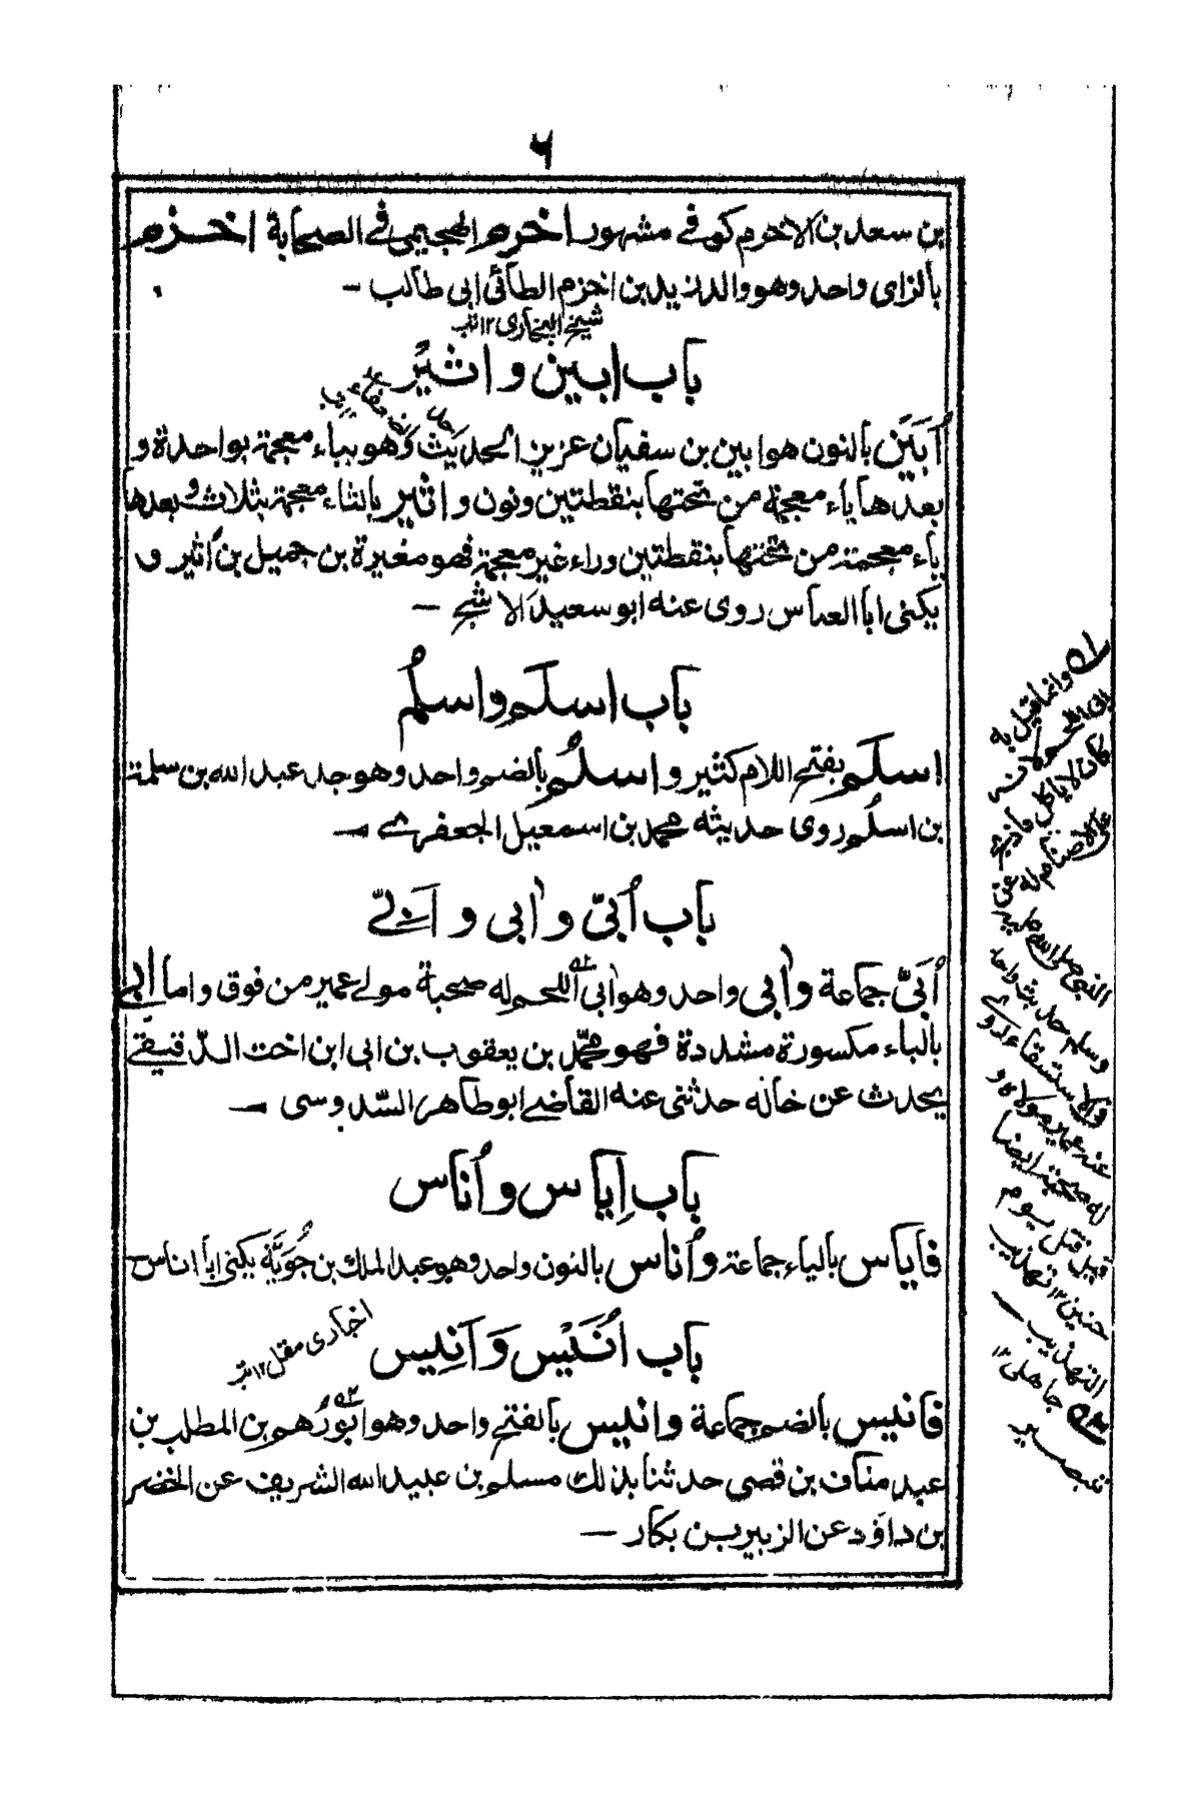 ٦
بن سعد بن الاخرم كوفى مشهور اخرم الهجيمى فى الصحابة اخزم
بالزاى واحد وهو والد زيد بن اخزم الطائى ابى طالب —
شيخ البخارى ١٢
باب ابين واثير
أبَيَن بالنون هو ابين بن سفيان عزيز الحديث وهو بباء معجمة بواحدة و
بعدها ياء معجمة من تحتها بنقطتين ونون واثير بالثاء معجمة بثلاث وبعدها
ياء معجمة من تحتها بنقطتين وراء غير معجمة فهو مغيرة بن جميل بن أثير و
يكنى ابا العباس روى عنه ابو سعيد الاشج —
باب اسلم واسلُم
اسلم بفتح اللام كثير واسلُم بالضم واحد وهو جد عبد الله بن سلمة
بن اسلُم روى حديثه محمد بن اسمعيل الجعفرى —
باب أبىّ وابى وآبىّ
أبىّ جماعة وابى واحد وهو ابى اللحم له صحبة مولى عمير من فوق واما ابى
بالباء مكسورة مشددة فهو محمّد بن يعقوب بن ابى ابن اخت الدّقيقى
يحدث عن خاله حدثنى عنه القاضى ابو طاهر السّدوسى —
باب اِياس وأناس
فاياس بالياء جماعة وأناس بالنون واحد وهو عبد الملك بن جُوَيَّة يكنى ابا اناس
اخبارى مقل ١٢
باب أنَيْس وَآنِيس
فانيس بالضم جماعة وانيس بالفتح واحد وهو ابو رُهم بن المطلب بن
عبد مناف بن قصى حدثنا بذلك مسلم بن عبيد الله الشريف عن الخضر
بن داؤد عن الزبير بن بكار —
وانما قيل به
ابى اللحم لانه
كان لا ياكل ما ذبح
على الاصنام له عن
النبى صلى الله عليه
وسلم حديث واحد
فى الاستسقاء روى
عنه عمير مولاه و
له صحبة ايضا
قيل قتل يوم
حنين ١٢ تهذيب
التهذيب
جاهلى ١٢
تبصير